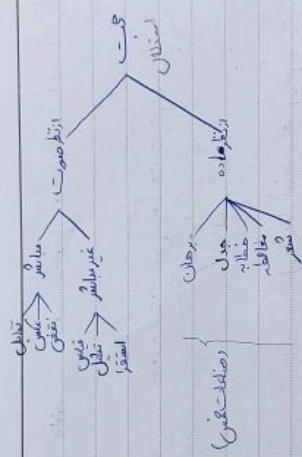 حجت
استدلال
از نظر صورت
از نظر ماده
مباشر
غیر مباشر
تقابل
عکس
نقض
قیاس
تمثیل
استقرا
برهان
جدل
خطابه
مغالطه
شعر
(صناعات خمس)